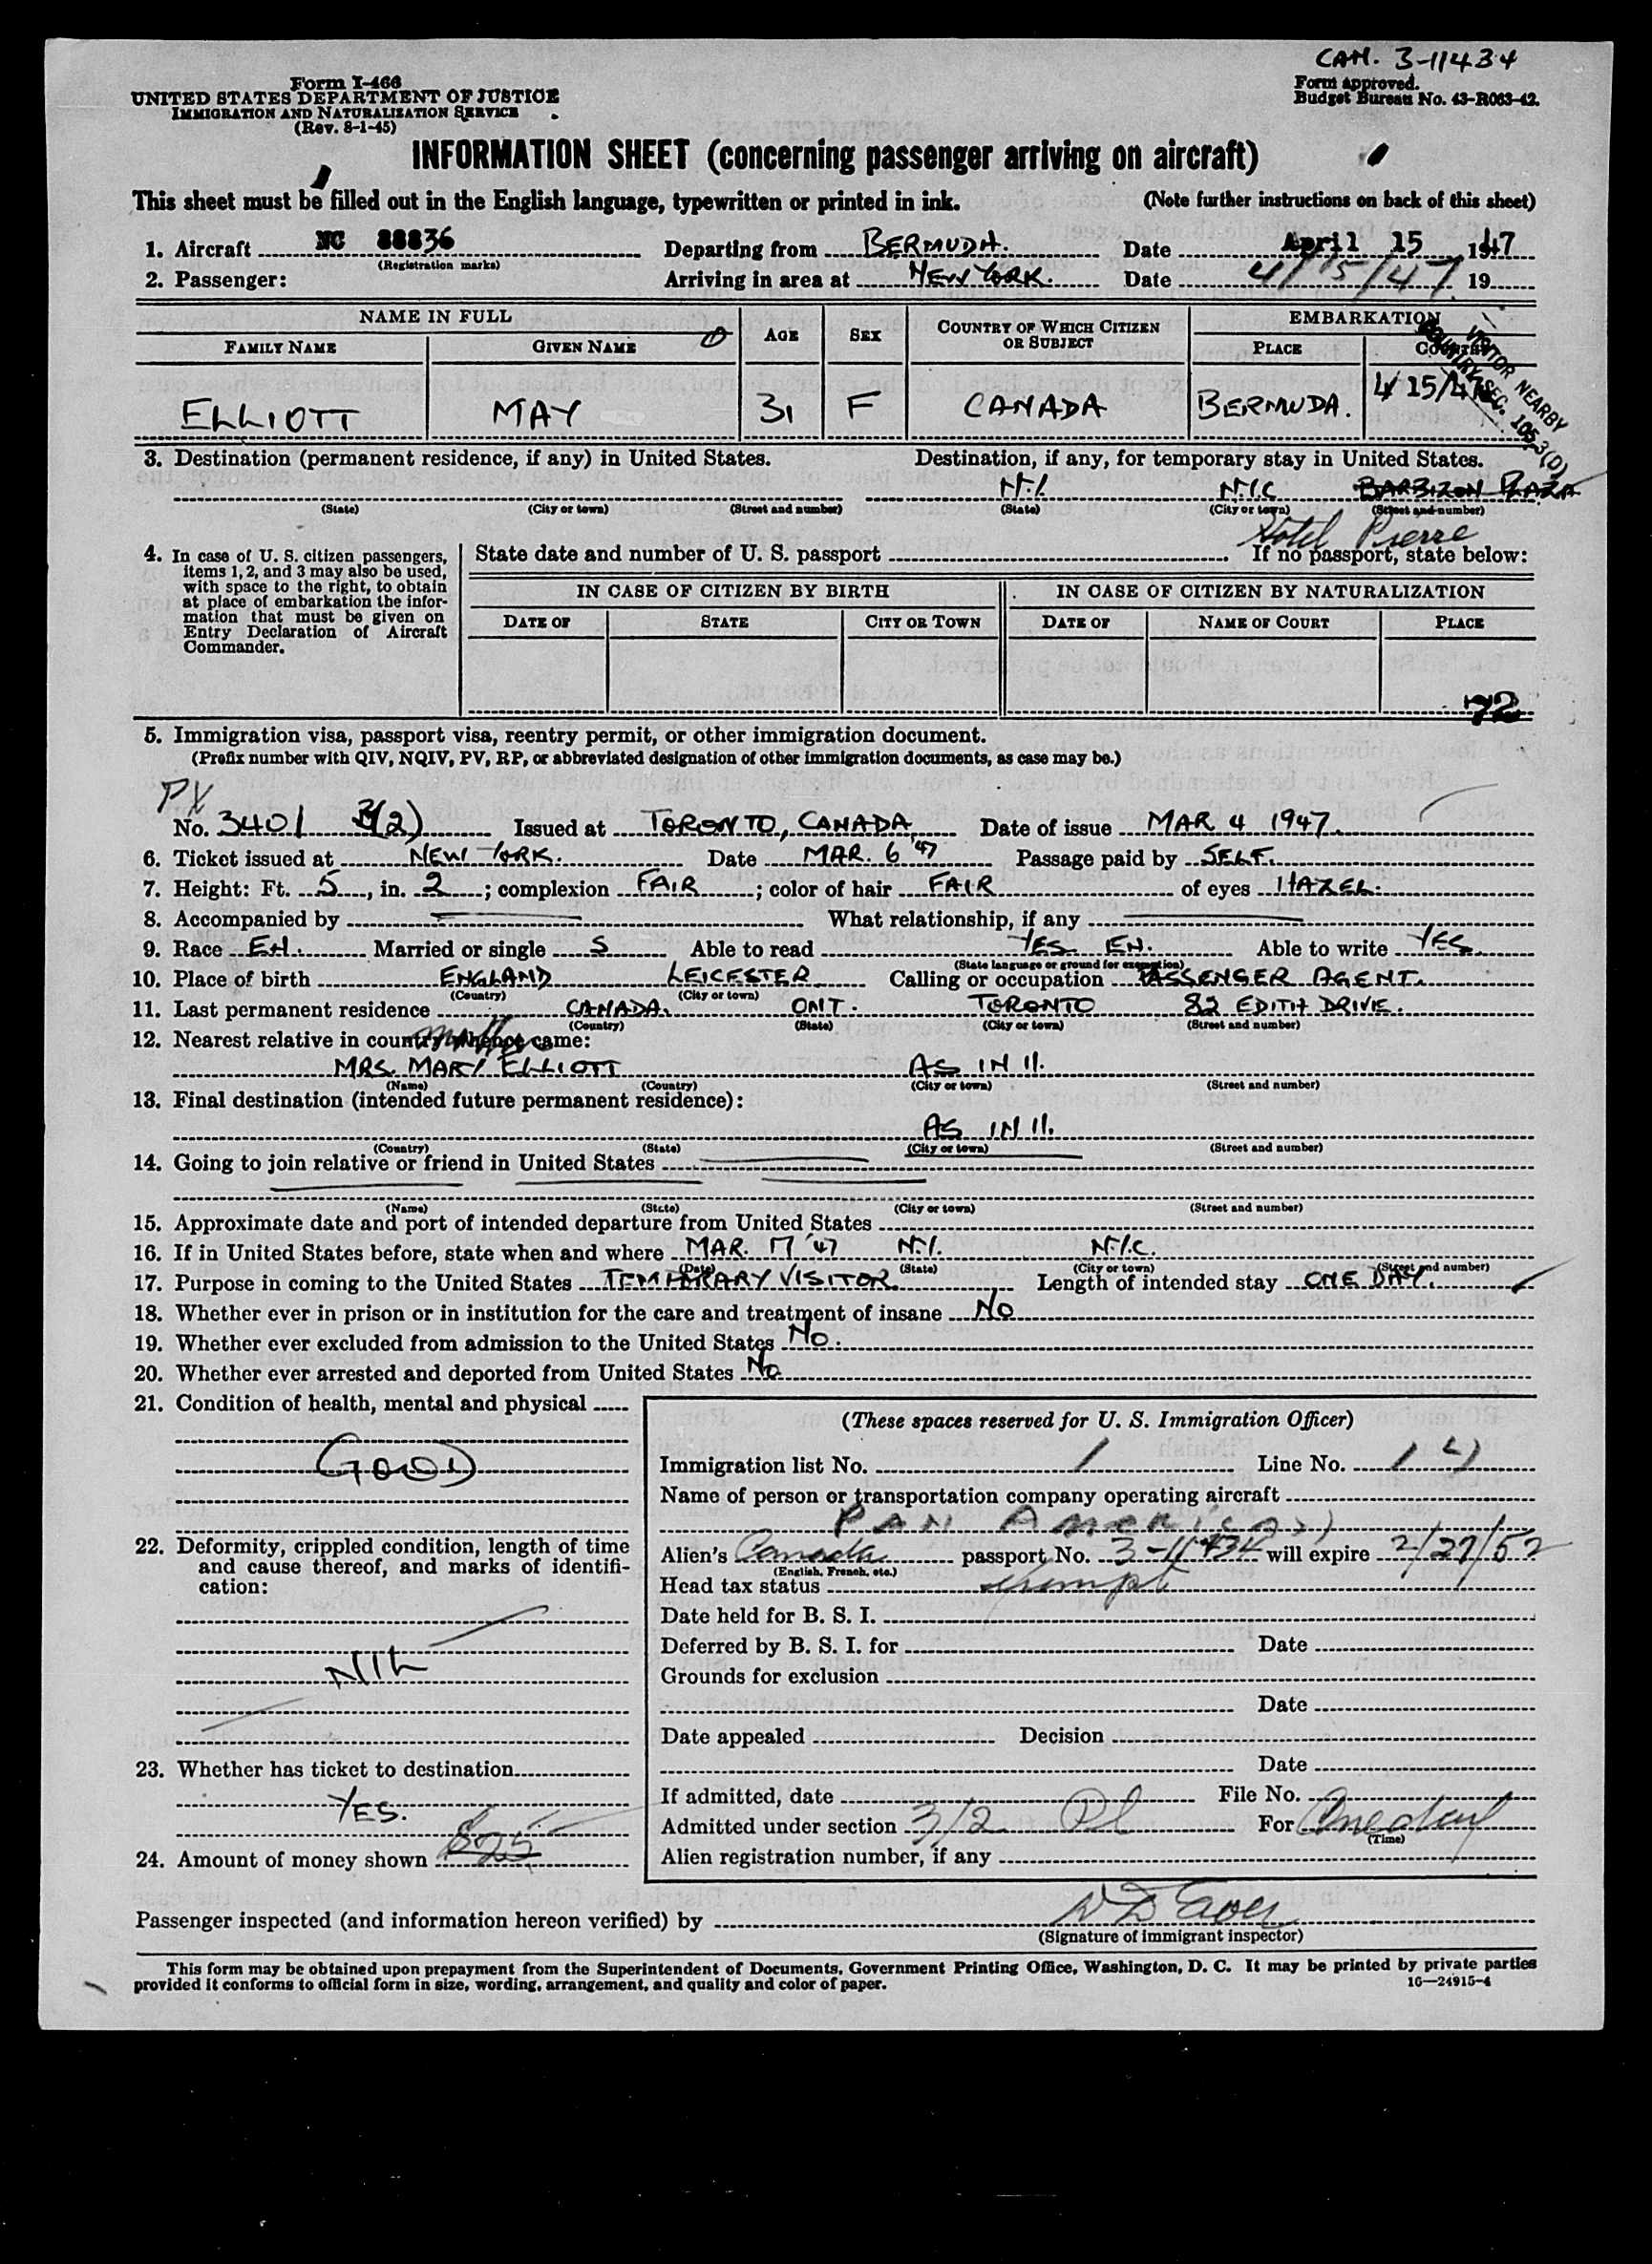 CAN. 3-11434
Form I-466
UNITED STATES DEPARTMENT OF JUSTICE
IMMIGRATION AND NATURALIZATION SERVICE
(Rev. 8-1-45)
Form approved.
Budget Bureau No. 43-R063-42.
INFORMATION SHEET (concerning passenger arriving on aircraft)
This sheet must be filled out in the English language, typewritten or printed in ink. (Note further instructions on back of this sheet)
1. Aircraft NC 88836 Departing from BERMUDA. Date April 15 1947
(Registration marks)
2. Passenger: Arriving in area at NEW YORK. Date 4/15/47 19
NAME IN FULL AGE SEX COUNTRY OF WHICH CITIZEN OR SUBJECT EMBARKATION
FAMILY NAME GIVEN NAME PLACE COUNTRY
VISITOR NEARBY
COUNTRY SEC. 105.3(D)
4/15/47
ELLIOTT MAY 31 F CANADA BERMUDA.
3. Destination (permanent residence, if any) in United States. Destination, if any, for temporary stay in United States.
N.Y. N.Y.C BARBIZON PLAZA
(State) (City or town) (Street and number) (State) (City or town) (Street and number)
Hotel Pierre
4. In case of U. S. citizen passengers, items 1, 2, and 3 may also be used, with space to the right, to obtain at place of embarkation the information that must be given on Entry Declaration of Aircraft Commander.
State date and number of U. S. passport If no passport, state below:
IN CASE OF CITIZEN BY BIRTH IN CASE OF CITIZEN BY NATURALIZATION
DATE OF STATE CITY OR TOWN DATE OF NAME OF COURT PLACE
72
5. Immigration visa, passport visa, reentry permit, or other immigration document.
(Prefix number with QIV, NQIV, PV, RP, or abbreviated designation of other immigration documents, as case may be.)
PV
No. 3401 3(2) Issued at TORONTO, CANADA, Date of issue MAR 4 1947.
6. Ticket issued at NEW YORK. Date MAR. 6 '47 Passage paid by SELF.
7. Height: Ft. 5, in. 2; complexion FAIR; color of hair FAIR of eyes HAZEL.
8. Accompanied by What relationship, if any
9. Race EN. Married or single S Able to read YES EN. Able to write YES.
(State language or ground for exemption)
10. Place of birth ENGLAND LEICESTER Calling or occupation PASSENGER AGENT.
(Country) (City or town)
11. Last permanent residence CANADA. ONT. TORONTO 82 EDITH DRIVE.
(Country) (State) (City or town) (Street and number)
12. Nearest relative in country whence came: mother
MRS. MARY ELLIOTT AS IN 11.
(Name) (Country) (City or town) (Street and number)
13. Final destination (intended future permanent residence):
AS IN 11.
(Country) (State) (City or town) (Street and number)
14. Going to join relative or friend in United States
(Name) (State) (City or town) (Street and number)
15. Approximate date and port of intended departure from United States
16. If in United States before, state when and where MAR. 17 '47 N.Y. N.Y.C.
(Date) (State) (City or town) (Street and number)
17. Purpose in coming to the United States TEMPORARY VISITOR Length of intended stay ONE DAY.
18. Whether ever in prison or in institution for the care and treatment of insane No
19. Whether ever excluded from admission to the United States No.
20. Whether ever arrested and deported from United States No
21. Condition of health, mental and physical
GOOD
22. Deformity, crippled condition, length of time and cause thereof, and marks of identification:
NIL
23. Whether has ticket to destination
YES.
24. Amount of money shown $25
(These spaces reserved for U. S. Immigration Officer)
Immigration list No. 1 Line No.
Name of person or transportation company operating aircraft
PAN American
Alien's Canada passport No. 3-11434 will expire 2/27/52
(English, French, etc.)
Head tax status exempt
Date held for B. S. I.
Deferred by B. S. I. for Date
Grounds for exclusion
Date
Date appealed Decision
Date
If admitted, date File No.
Admitted under section 3/2 For One day
(Time)
Alien registration number, if any
Passenger inspected (and information hereon verified) by
(Signature of immigrant inspector)
This form may be obtained upon prepayment from the Superintendent of Documents, Government Printing Office, Washington, D. C. It may be printed by private parties
provided it conforms to official form in size, wording, arrangement, and quality and color of paper. 16—24915-4